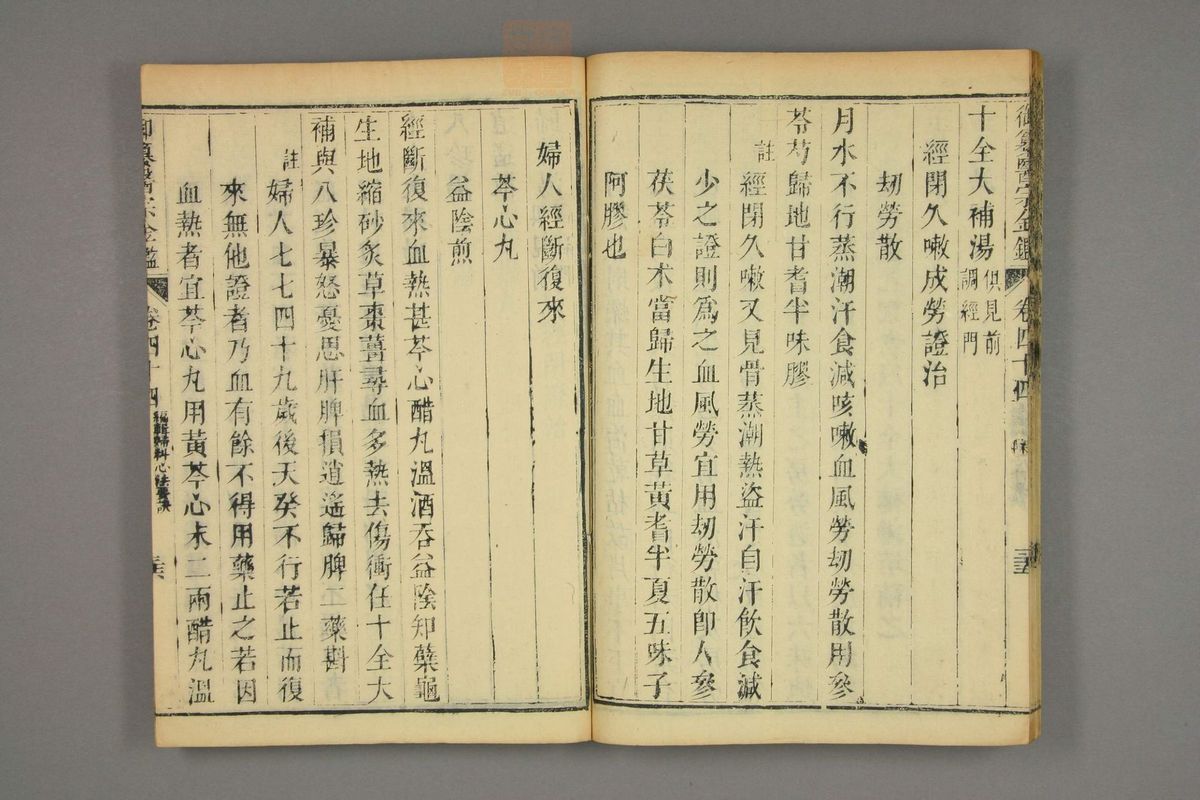 御纂醫宗金鑑 卷四十四
十全大補湯 俱見前調經門
經閉久嗽成勞證治
劫勞散
月水不行蒸潮汗食減咳嗽血風勞劫勞散用參
苓芍歸地甘耆半味膠
註 經閉久嗽又見骨蒸潮熱盜汗自汗飲食減
少之證則爲之血風勞宜用劫勞散即人參
茯苓白朮當歸生地甘草黃耆半夏五味子
阿膠也
婦人經斷復來
芩心丸
益陰煎
經斷復來血熱甚芩心醋丸溫酒吞益陰知蘗龜
生地縮砂炙草棗薑尋血多熱去傷衝任十全大
補與八珍暴怒憂思肝脾損逍遙歸脾二藥斟
註 婦人七七四十九歲後天癸不行若止而復
來無他證者乃血有餘不得用藥止之若因
血熱者宜芩心丸用黃芩心末二兩醋丸溫
御纂醫宗金鑑 卷四十四 編輯婦科心法要訣 三六